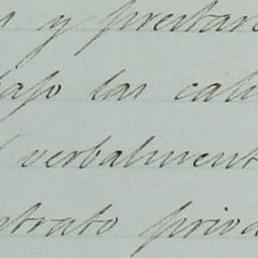 y prestar
bajo las cali
verbalment
ntrato priva